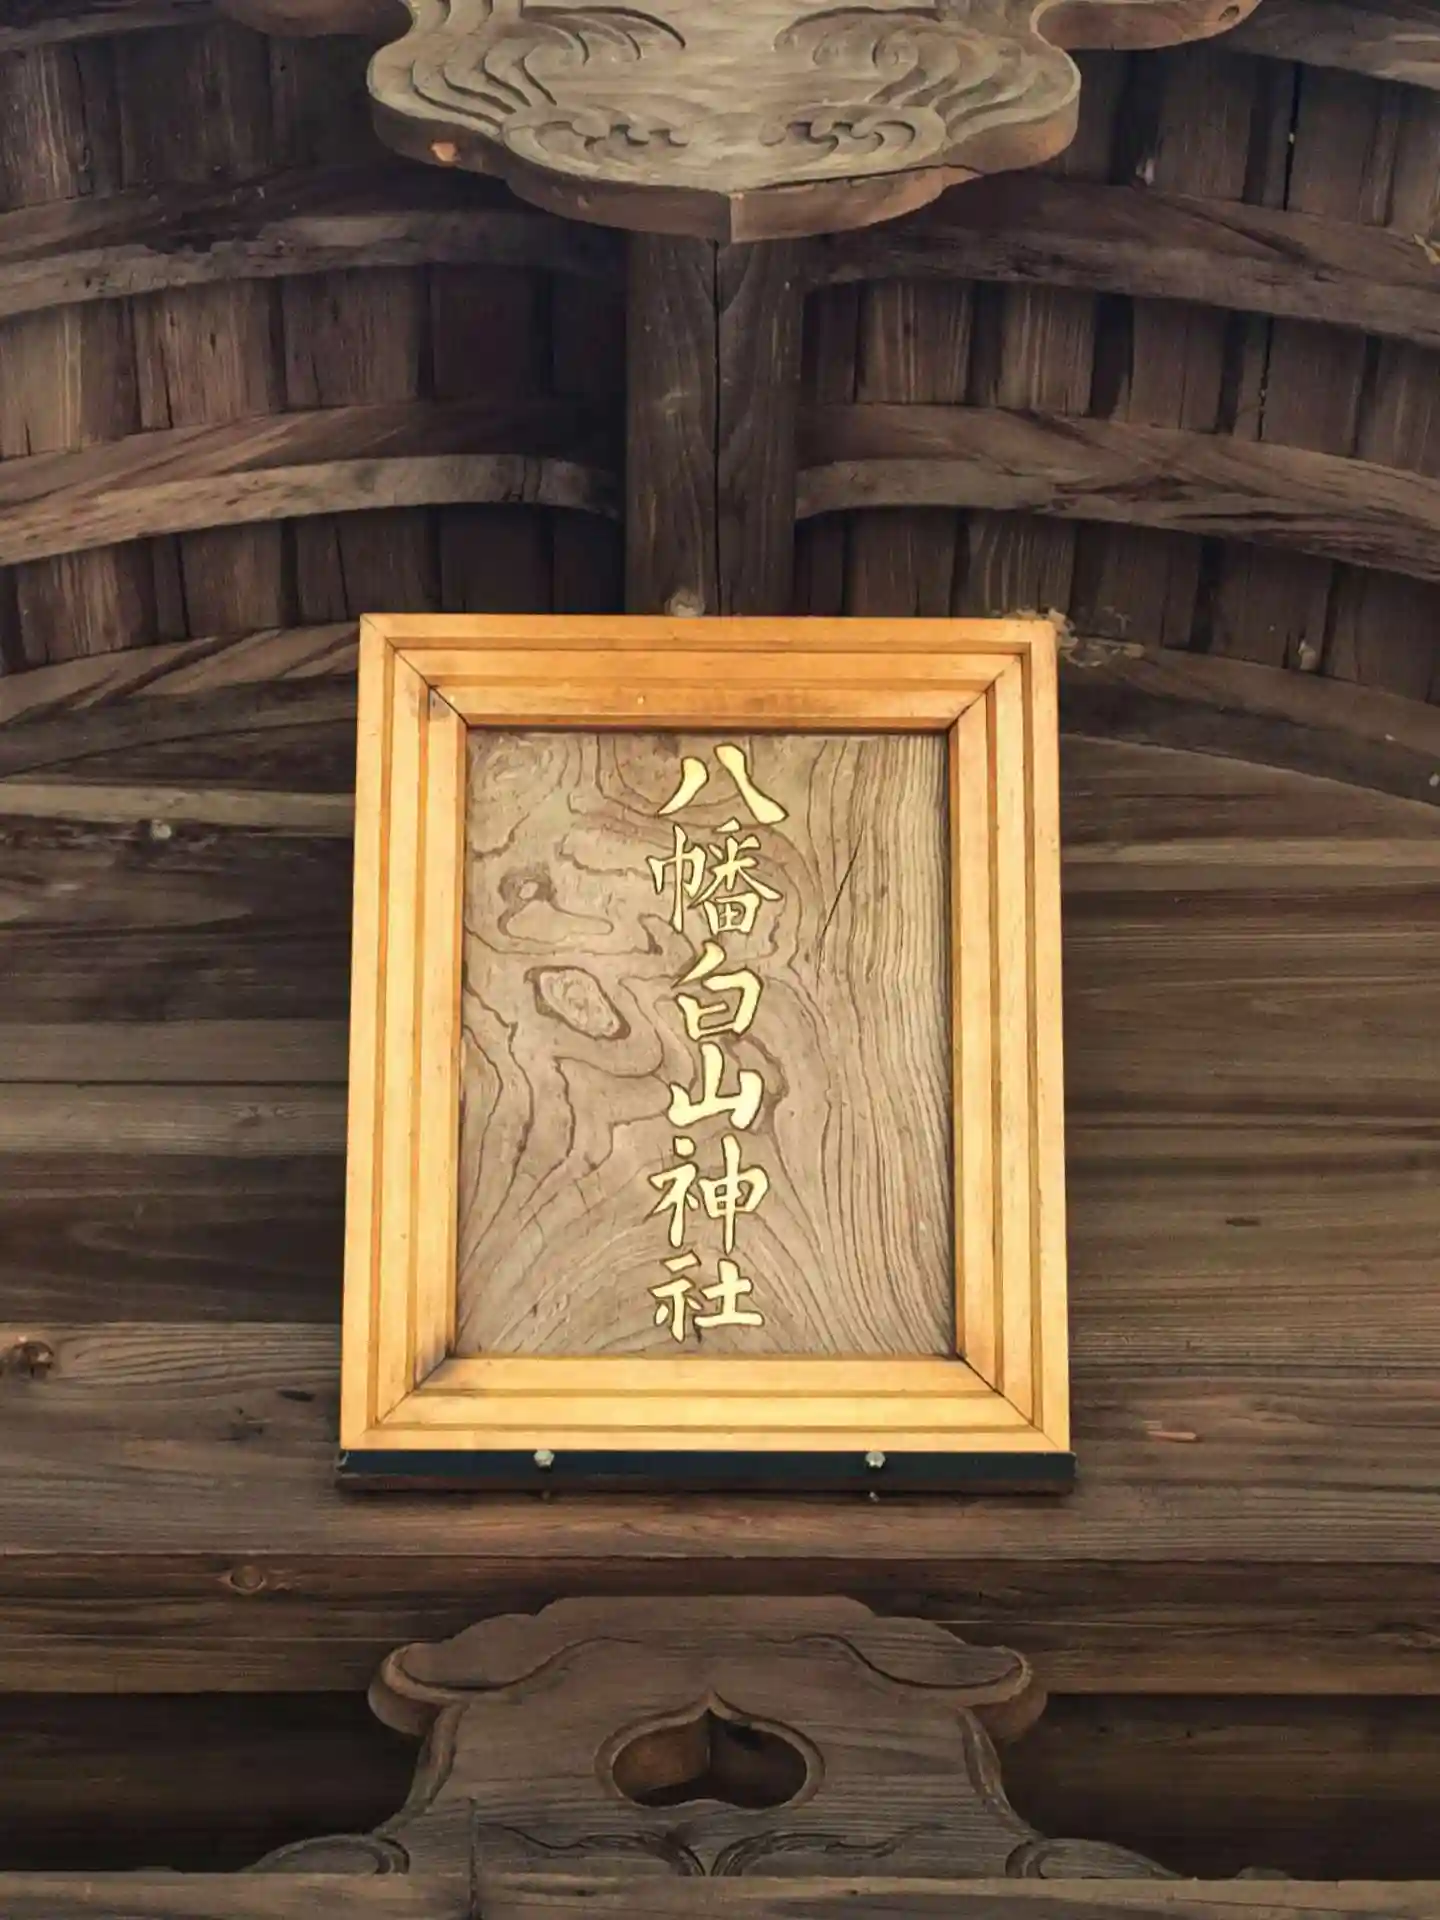 八幡白山神社